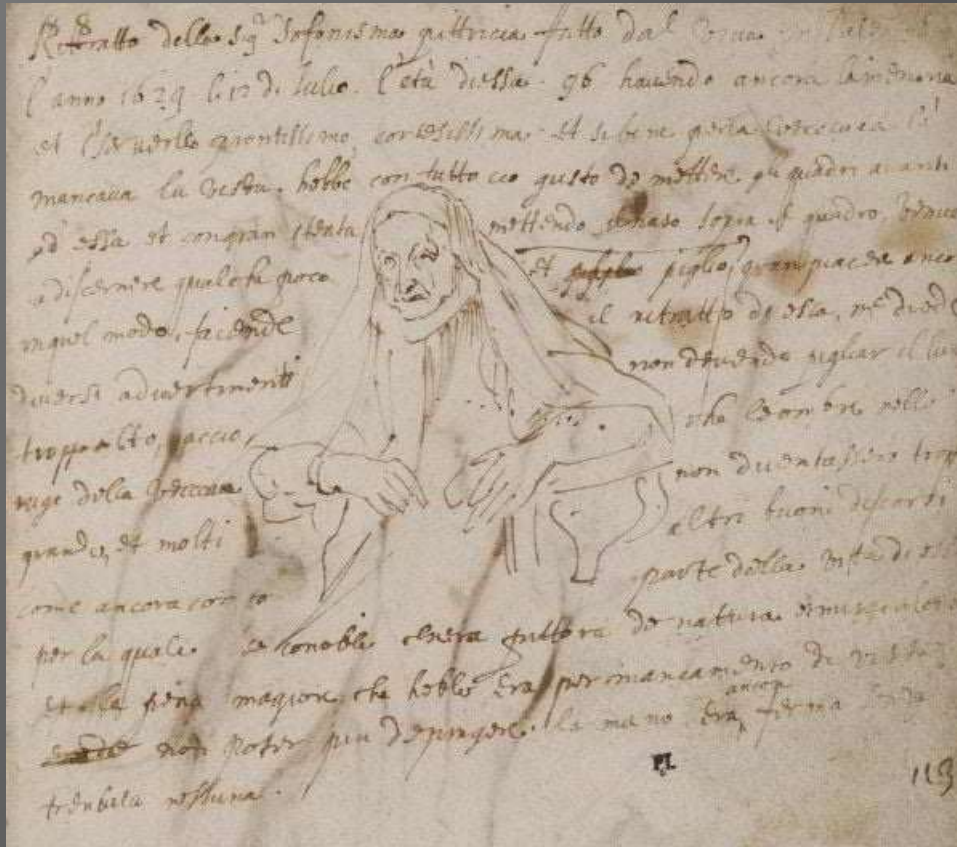 Rittratto della Sig.ra Sofonisma pittricia fatto dal vivo in Palermo
l'anno 1624 li 12 di Julio. l'età di essa. 96 havendo ancora la memoria
et il serverllo prontissimo, cortesissima. et sebene per la vecciaia le
mancava la vista. hebbe con tutto cio gusto de mettere gli quadri avanti
ad essa et con gran stenta mettendo il naso sopra il quadro, venne
a discernere qualche poco et piglio gran piacere ancora
in quel modo, facendo il ritratto de essa, me diede
diversi advertimenti non devendo pigliar il lume
troppo alto, accio, che le ombre nelle
ruge della vecciaia non diventassero troppo
grande, et molti altri buoni discorsi
come ancora conto parte della vita di essa
per la quale. se conobbe chera pittora de natura et miraculosa
et la pena magiore che hebbe era per mancamento di vista
non poter piu depingere. la mano era ancora ferma senza
trembula nessuna.
P.L.